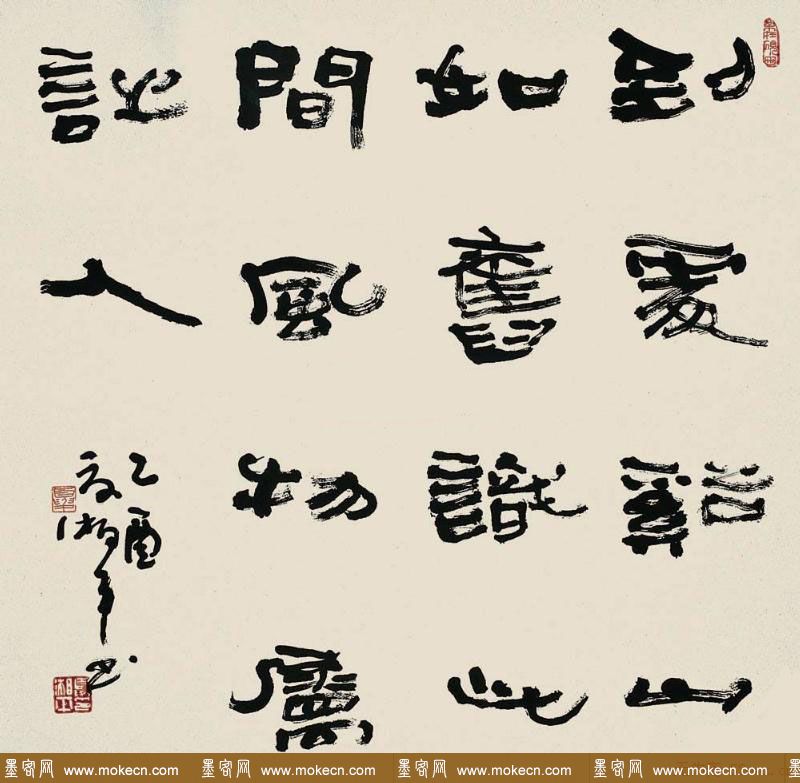 到處谿山
如舊識此
間風物屬
詩人
乙酉
夏湘平书
墨客网 www.mokecn.com 墨客网 www.mokecn.com 墨客网 www.mokecn.com 墨客网 www.mokecn.com